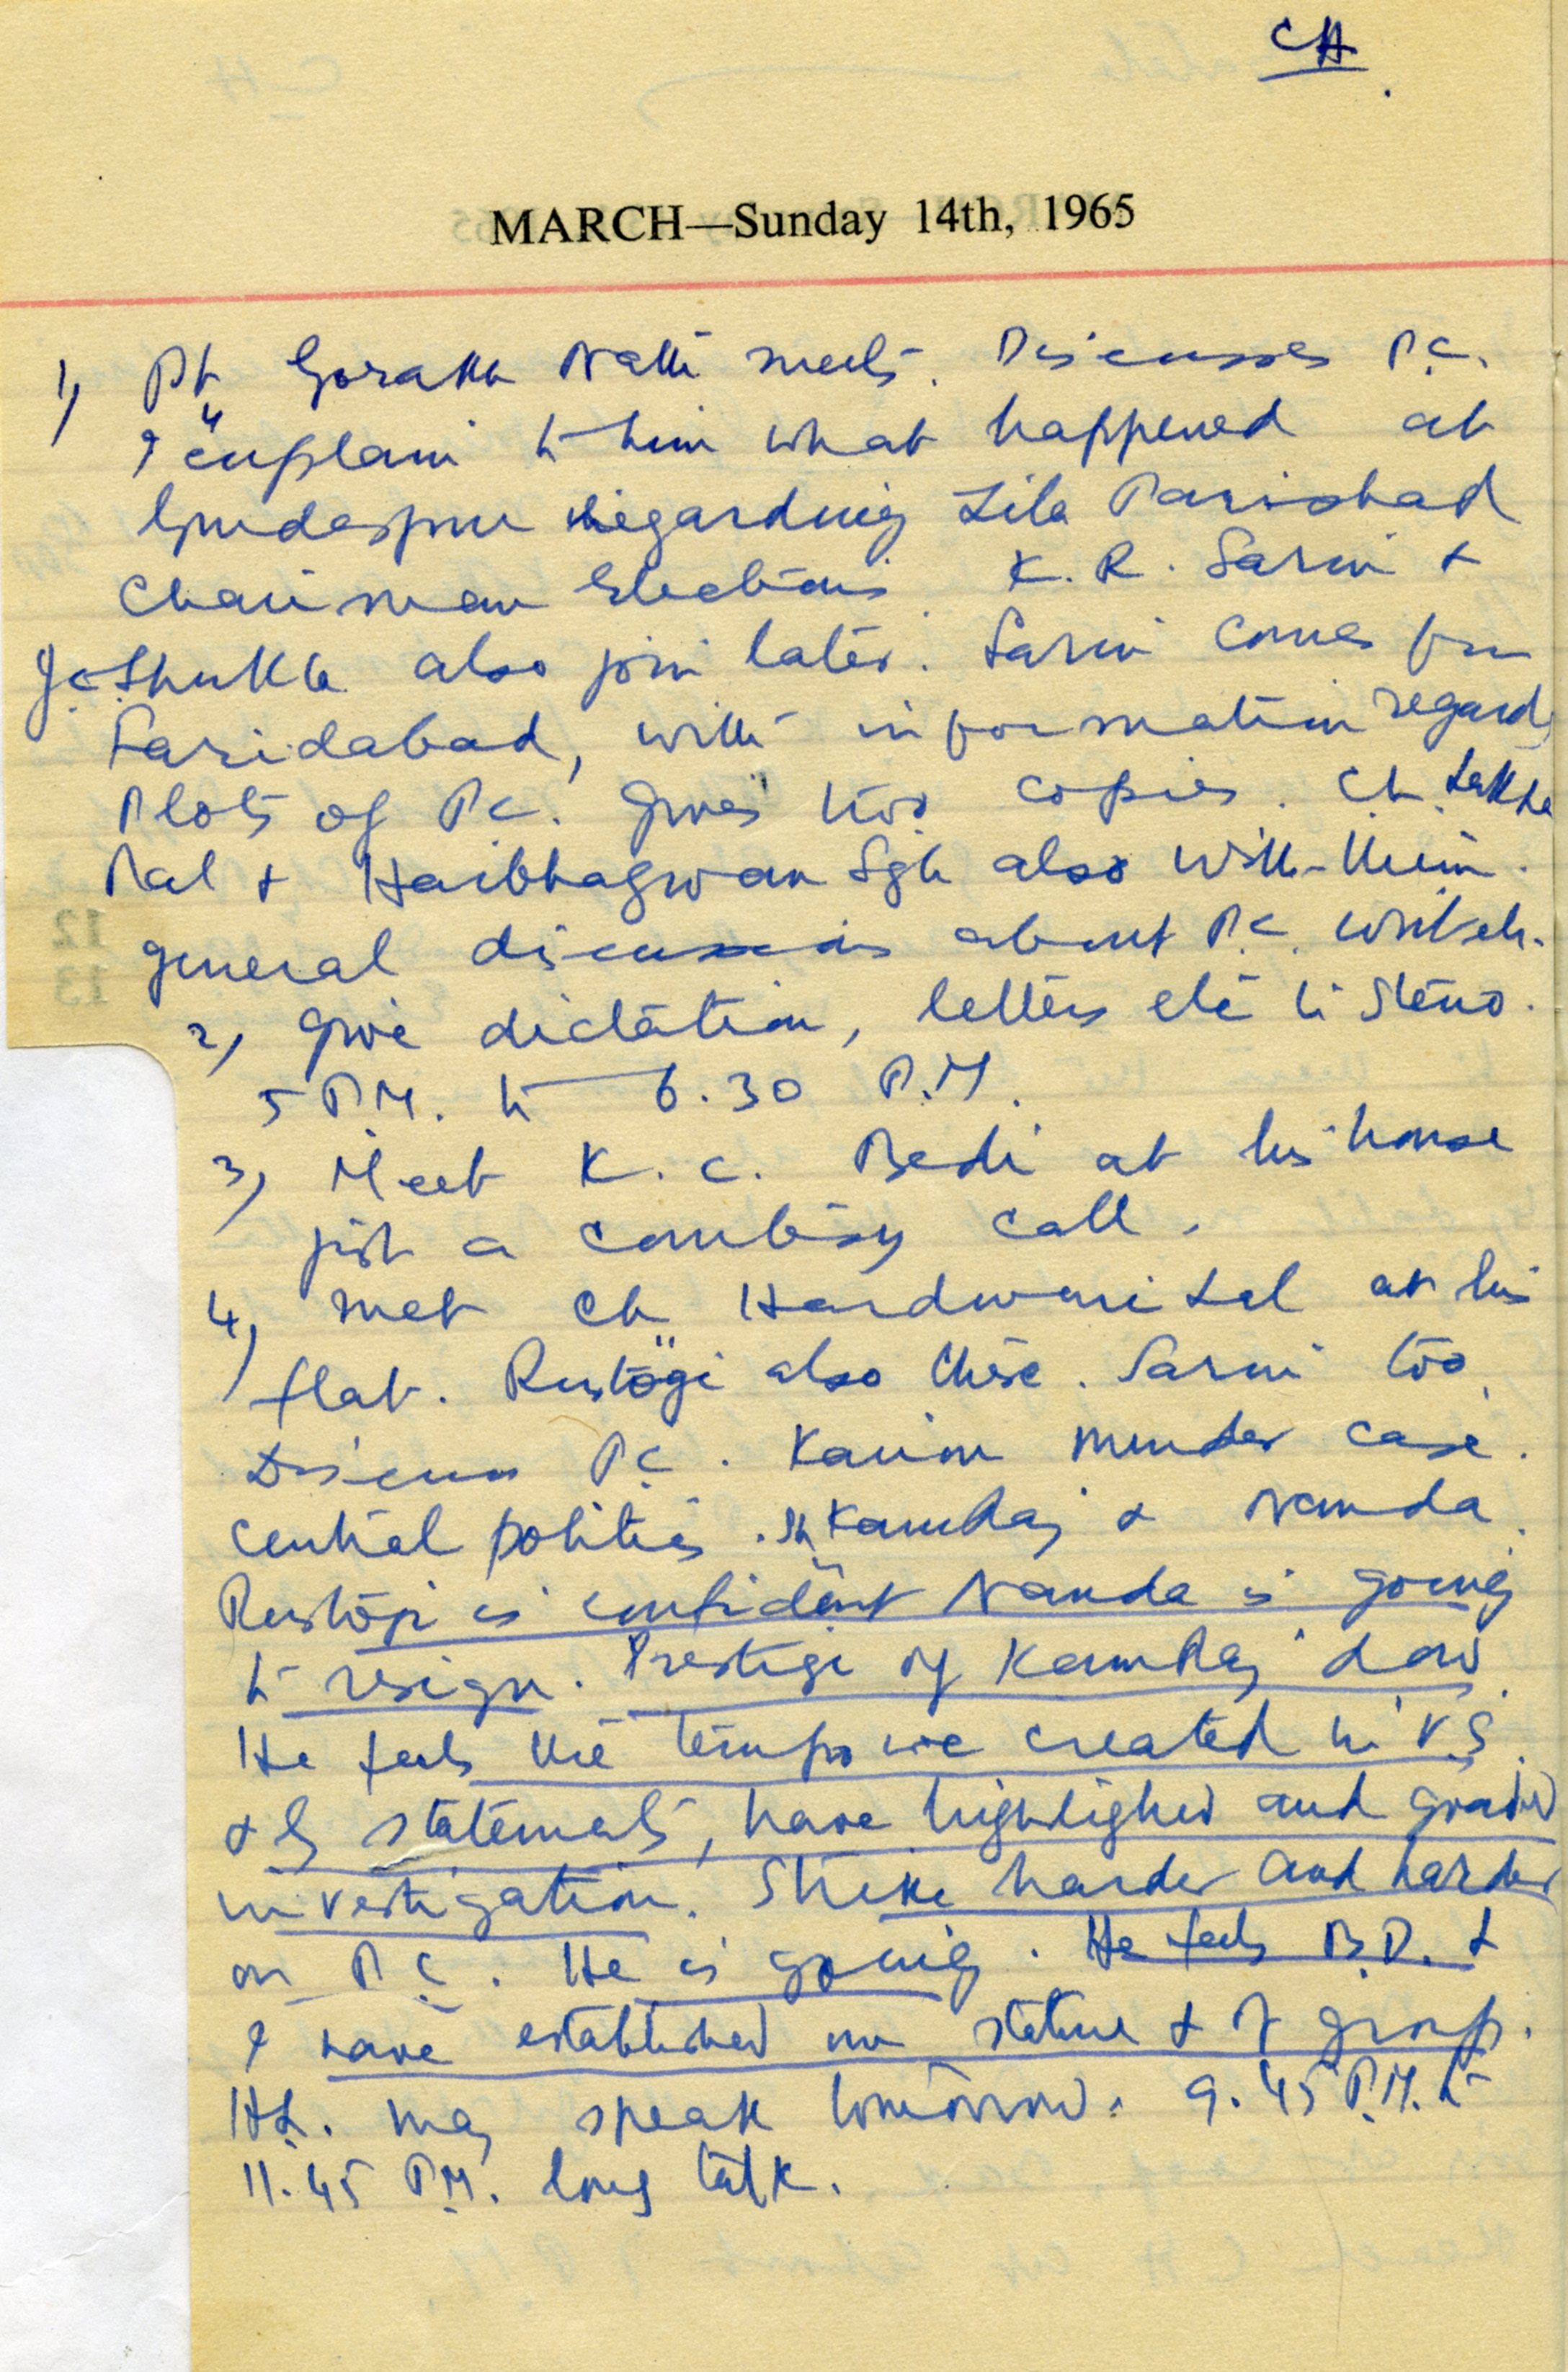 CH.
MARCH—Sunday 14th, 1965
1) Pt Gorakh Nath meets. Discusses P.C.
I explain to him what happened at
Gurdaspur regarding Zila Parishad
Chairman Elections. K. R. Sarin &
J.C. Shukla also join later. Sarin comes from
Faridabad, with information regardg
Plots of P.C. gives two copies. Ch. Lakha
Pal & Haribhagwan Sgh also with them.
general discussions about P.C.
2) give dictation, letters etc to Steno.
5 P.M. to 6.30 P.M.
3) Meet K. C. Bedi at his house
just a courtesy call.
4) met Ch Hardwari Lal at his
flat. Rustogi also there. Sarin too.
Discuss P.C. Karion murder case.
Central politics. Sh KamRaj & Nanda.
Rustogi is confident Nanda is going
to resign. Prestige of KamRaj low.
He feels the tempo we created in V.S.
& statements, have highlighted and
investigation. Strike harder and harder
on P.C. He is going. He feels B.D. &
I have established our stature & of group.
HL. may speak tomorrow. 9.45 P.M. to
11.45 P.M. long talk.